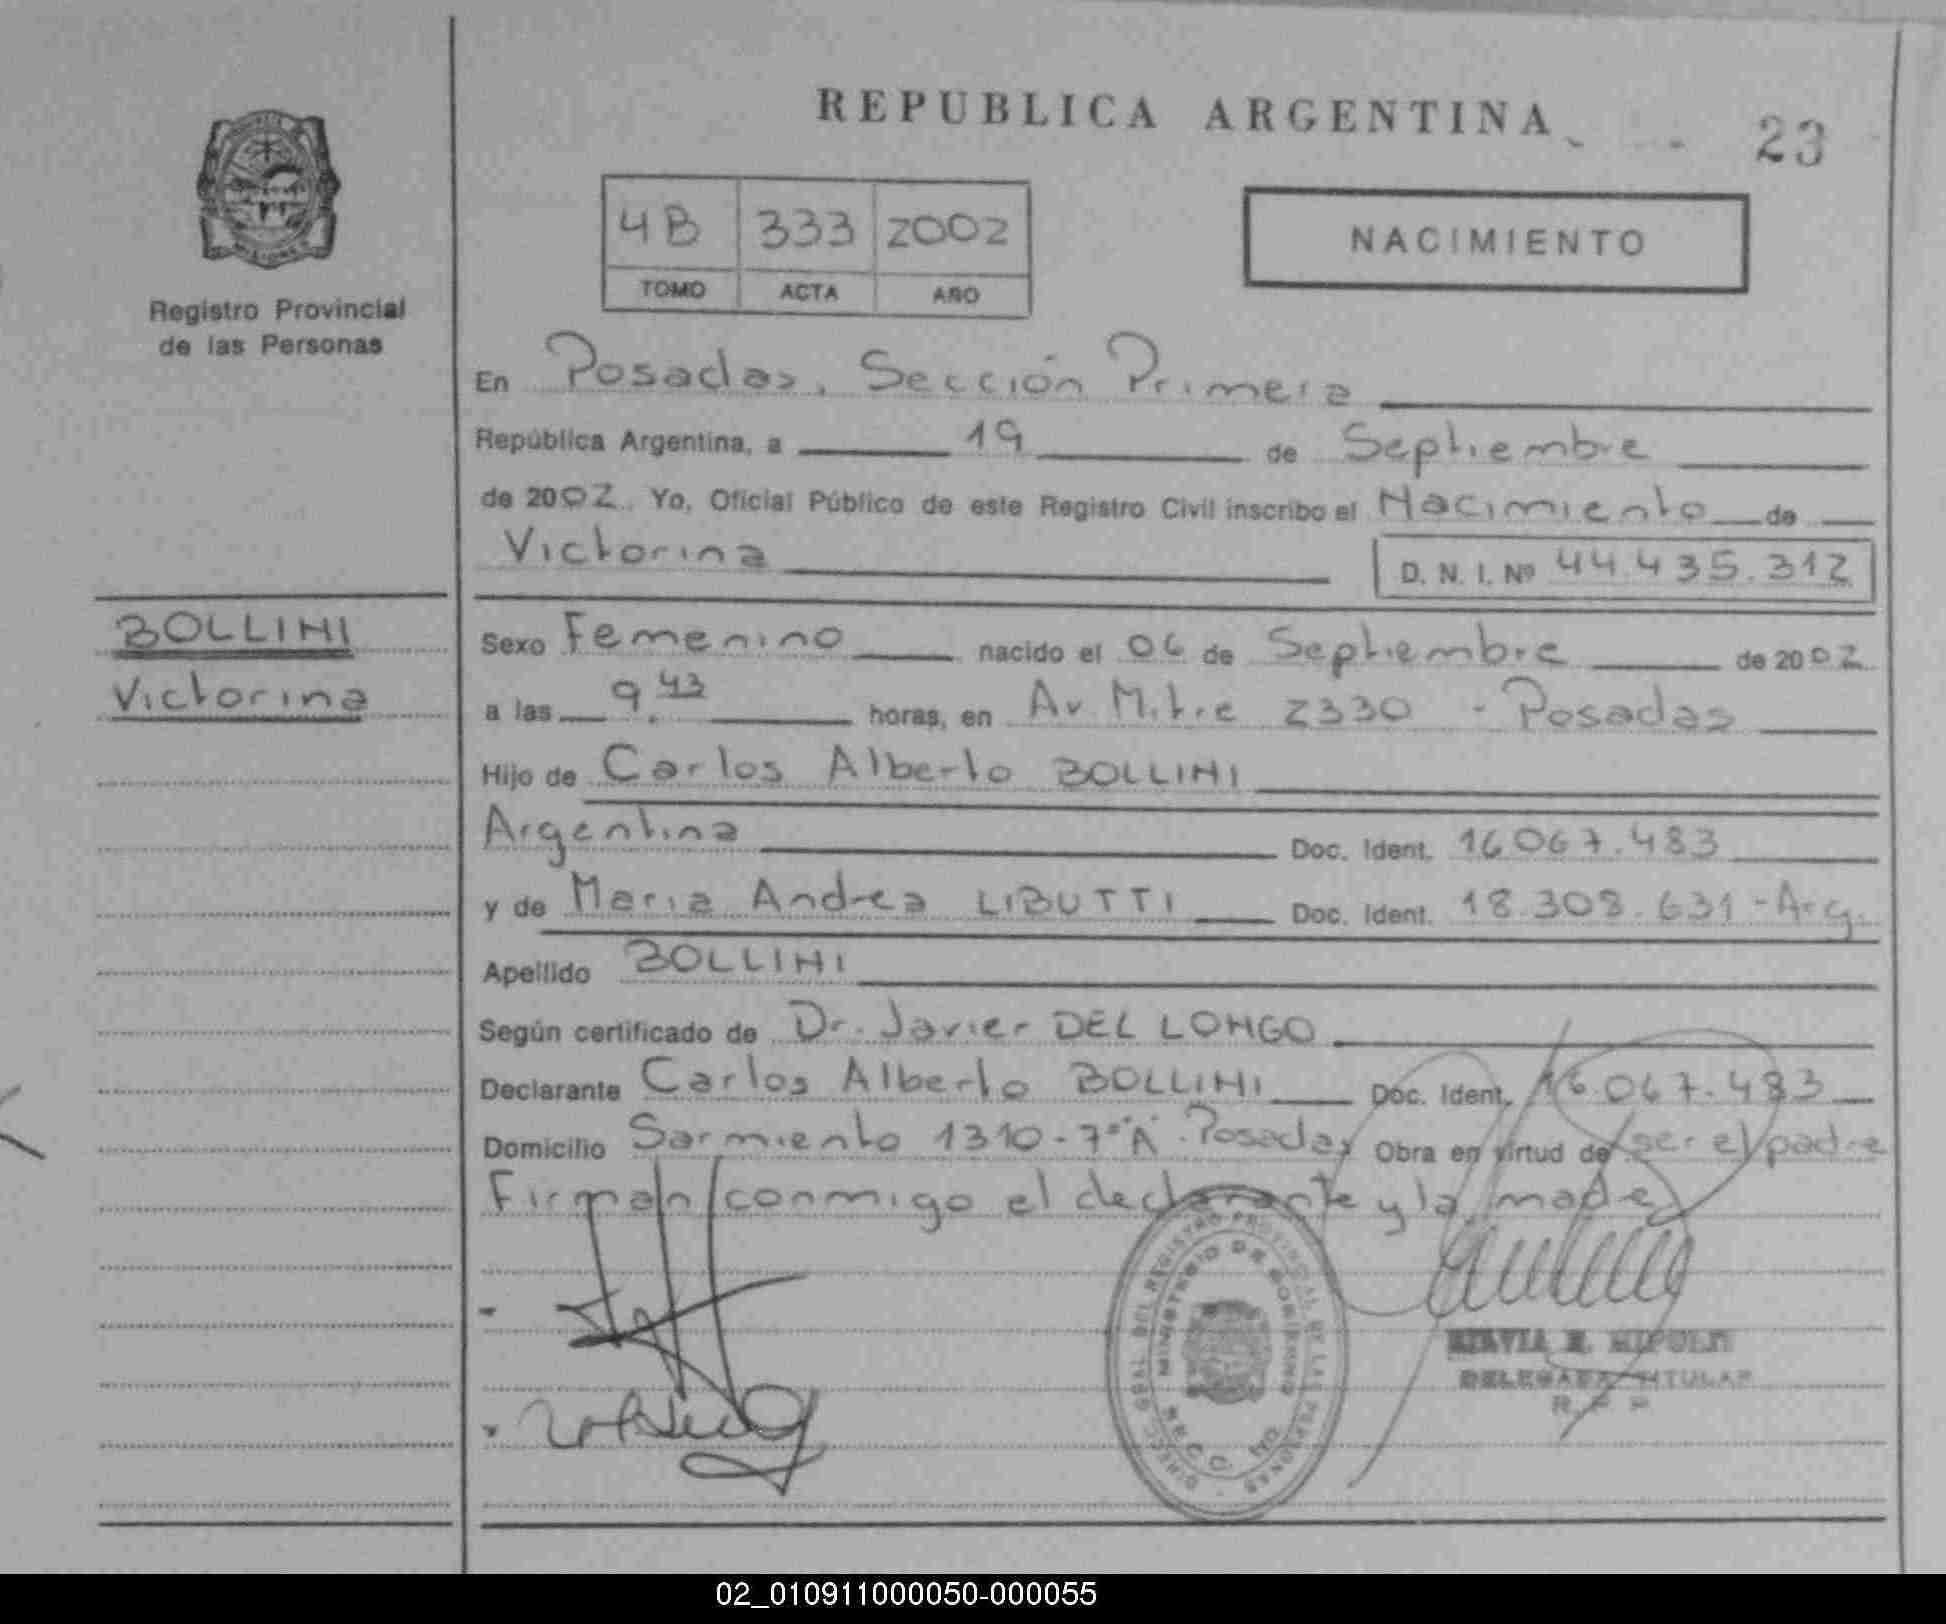 REPUBLICA ARGENTINA
23
4B 333 2002
TOMO ACTA AÑO
NACIMIENTO
Registro Provincial
de las Personas
En Posadas, Sección Primera
República Argentina, a 19 de Septiembre
de 2002. Yo, Oficial Público de este Registro Civil inscribo el Nacimiento de
Victorina
D. N. I. Nº 44.435.312
BOLLINI
Victorina
Sexo Femenino nacido el 06 de Septiembre de 2002
a las 9.43 horas, en Av. Mitre 2330 - Posadas
Hijo de Carlos Alberto BOLLINI
Argentina Doc. Ident. 16.067.483
y de Maria Andrea LIBUTTI Doc. Ident. 18.308.631 - Arg.
Apellido BOLLINI
Según certificado de Dr. Javier DEL LONGO
Declarante Carlos Alberto BOLLINI Doc. Ident. 16.067.483
Domicilio Sarmiento 1310 - 7º "A" - Posadas Obra en virtud de ser el padre
Firman conmigo el declarante y la madre
DIREC. GRAL. DEL REGISTRO PROVINCIAL DE LAS PERSONAS
MINISTERIO DE GOBIERNO
SECC.
DELEGADA TITULAR
R. P. P.
02_010911000050-000055